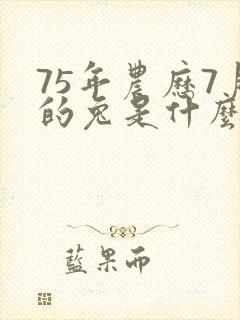 75年農曆7月
的兔是什麼
藍果而